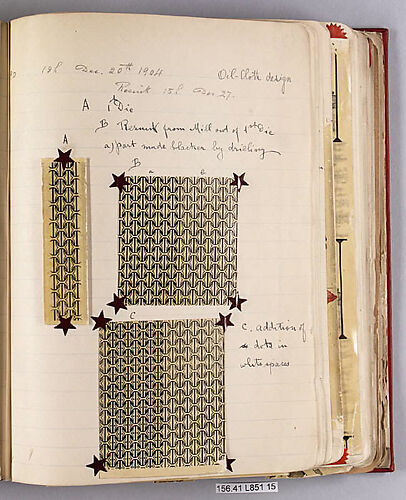 Dec. 20th 1904 Oil-Cloth design
15L Dec. 27.
A 1st Die
B from Mill out of 1st Die
a, part made blacker by drilling
A
B
a e
C
C, addition of
dots in
white spaces
156.41 L851 15